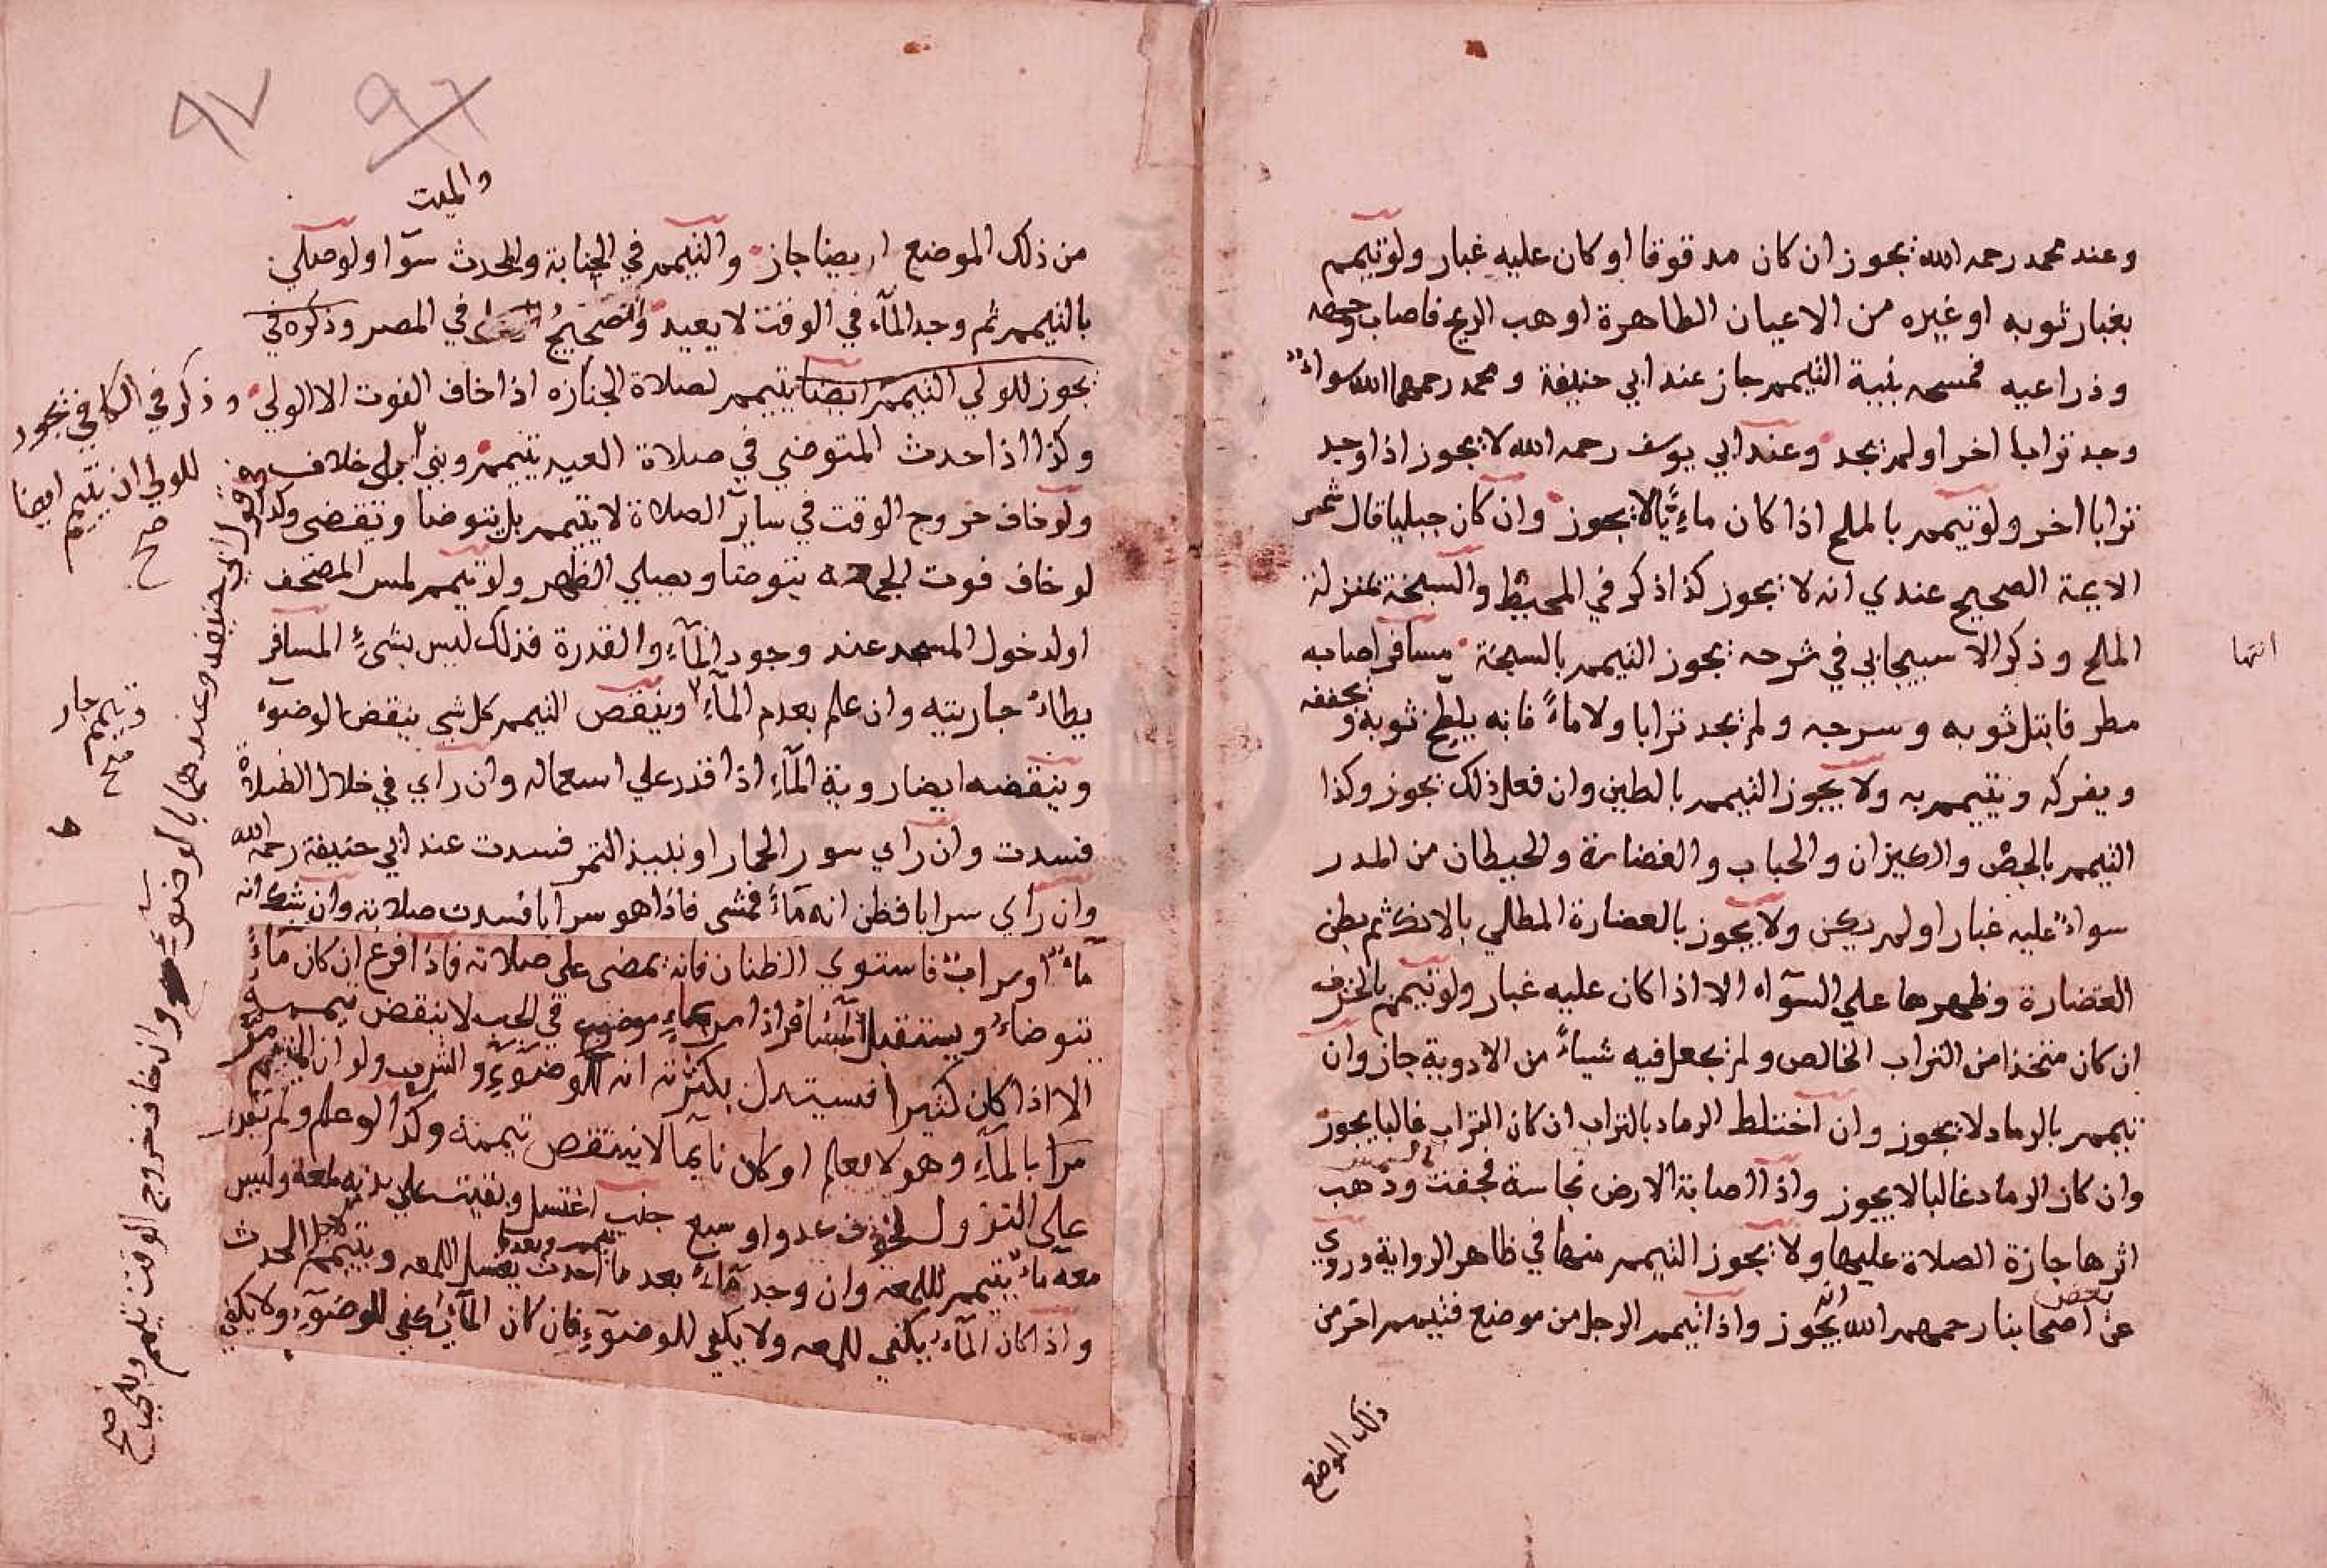 وعند محمد رحمه الله يجوز ان كان مدقوقا او كان عليه غبار ولو تيمم
بغبار ثوبه او غيره من الاعيان الطاهرة او هب الريح فاصاب وجهه
وذراعيه فمسحه بنية التيمم جاز عند ابي حنيفة ومحمد رحمهما الله سواء
وجد ترابا اخر او لم يجد وعند ابي يوسف رحمه الله لا يجوز اذا وجد
ترابا اخر ولو تيمم بالملح اذا كان مائيا لا يجوز وان كان جبليا قال شمس
الايمة الصحيح عندي انه لا يجوز كذا ذكر في المحيط والسبخة بمنزلة
الملح وذكر الاسبيجابي في شرحه يجوز التيمم بالسبخة مسافر اصابه
انتها
مطر فابتل ثوبه وسرجه ولم يجد ترابا ولا ماء فانه يلطخ ثوبه ويجففه
ويفركه ويتيمم به ولا يجوز التيمم بالطين وان فعل ذلك يجوز وكذا
التيمم بالجص والكيزان والحباب والغضارة والحيطان من المدر
سواء عليه غبار او لم يكن ولا يجوز بالغضارة المطلي بالانك ثم بطن
الغضارة وظهرها علي السواء الا اذا كان عليه غبار ولو تيمم بالخزف
ان كان متخذا من التراب الخالص ولم يجعل فيه شياء من الادوية جاز وان
تيمم بالرماد لا يجوز وان اختلط الرماد بالتراب ان كان التراب غالبا يجوز
وان كان الرماد غالبا لا يجوز واذا اصابة الارض نجاسة فجفت وذهب
اثرها جازة الصلاة عليها ولا يجوز التيمم منها في ظاهر الرواية وروي
عن بعض اصحابنا رحمهم الله انه يجوز واذا تيمم الرجل من موضع فتيمم اخر من
ذلك الموضع
٩٦
٩٧
والميت
من ذلك الموضع ايضا جاز والتيمم في الجنابة والحدث سوا ولو صلي
بالتيمم ثم وجد الماء في الوقت لا يعيد والصحيح في المصر وذكره في
يجوز للولي التيمم ايضا يتيمم لصلاة الجنازه اذا خاف الفوت الا الولي وذكر في الكافي يجوز
للولي ان يتيمم ايضا
صح
وكذا اذا احدث المتوضي في صلاة العيد يتيمم وبني بلا خلاف
ولو خاف خروج الوقت في ساير الصلاة لا يتيمم بل يتوضا ويقضي وكذا
لو خاف فوت الجمعة يتوضا ويصلي الظهر ولو تيمم لمس المصحف
او لدخول المسجد عند وجود الماء والقدرة فذلك ليس بشيء المسافر
يطاء جاريته وان علم بعدم الماء وينقض التيمم كل شي ينقض الوضوء
ويتيمم جاز
صح
وينقضه ايضا روية الماء اذا قدر علي استعماله وان راي في خلال الصلاة
فسدت وان راي سور الحمار او نبيذ التمر فسدت عند ابي حنيفة رحمه الله
وان راي سرابا فظن انه ماء فمشي فاذا هو سرابا فسدت صلاته وان شك انه
ماء او سراب فاستوي الظنان فانه يمضي علي صلاته فاذا فرغ ان كان ماء
يتوضاء ويستقبل المسافر اذا مر بماء موضوع في الحب لا ينقض تيممه
الا اذا كان كثيرا فيستدل بكثرته انه للوضوء والشرب ولو ان المتيمم مر
مرا بالماء وهو لا يعلم او كان نايما لا ينتقض تيممه وكذا لو علم ولم يقدر
علي النزول لخوف عدو او سبع جنب اغتسل وبقيت علي بدنه لمعة وليس
معه ماء يتيمم لللمعه وان وجد ماء بعد ما تيمم وبعد ما احدث يغسل اللمعه ويتيمم لاجل الحدث
واذا كان الماء يكفي للمعه ولا يكفي للوضوء فان كان الماء يكفي للوضوء ولا يكفي
قول ابي حنيفة وعندهما بالوضوء وان خاف خروج الوقت تيمم بالاجماع صح